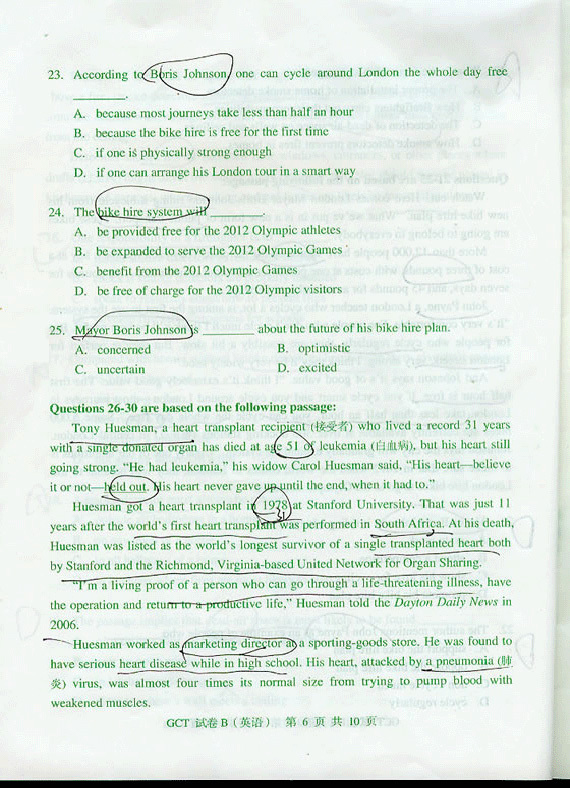 23. According to Boris Johnson, one can cycle around London the whole day free
________.
A. because most journeys take less than half an hour
B. because the bike hire is free for the first time
C. if one is physically strong enough
D. if one can arrange his London tour in a smart way
24. The bike hire system will ________.
A. be provided free for the 2012 Olympic athletes
B. be expanded to serve the 2012 Olympic Games
C. benefit from the 2012 Olympic Games
D. be free of charge for the 2012 Olympic visitors
25. Mayor Boris Johnson is ________ about the future of his bike hire plan.
A. concerned B. optimistic
C. uncertain D. excited
Questions 26-30 are based on the following passage:
Tony Huesman, a heart transplant recipient (接受者) who lived a record 31 years
with a single donated organ has died at age 51 of leukemia (白血病), but his heart still
going strong. “He had leukemia,” his widow Carol Huesman said, “His heart—believe
it or not—held out. His heart never gave up until the end, when it had to.”
Huesman got a heart transplant in 1978 at Stanford University. That was just 11
years after the world’s first heart transplant was performed in South Africa. At his death,
Huesman was listed as the world’s longest survivor of a single transplanted heart both
by Stanford and the Richmond, Virginia-based United Network for Organ Sharing.
“I’m a living proof of a person who can go through a life-threatening illness, have
the operation and return to a productive life,” Huesman told the Dayton Daily News in
2006.
Huesman worked as marketing director at a sporting-goods store. He was found to
have serious heart disease while in high school. His heart, attacked by a pneumonia (肺
炎) virus, was almost four times its normal size from trying to pump blood with
weakened muscles.
GCT 试卷 B（英语） 第 6 页 共 10 页